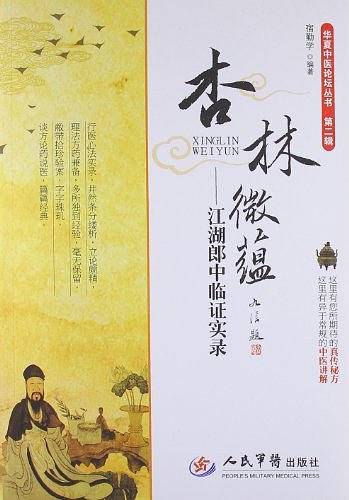 华夏中医论坛丛书·第二辑
宿勤学◎编著
杏林微蕴
XINGLIN
WEIYUN
——江湖郎中临证实录
行医心法实录，井然条分缕析，立论颇精，
理法方药兼备，多所独到经验，毫无保留，
敝帚拾珍验案，字字珠玑，
谈方论药说医，篇篇经典。
这里有您所期待的真传秘方
这里有异于常规的中医讲解
人民军医出版社
PEOPLE'S MILITARY MEDICAL PRESS